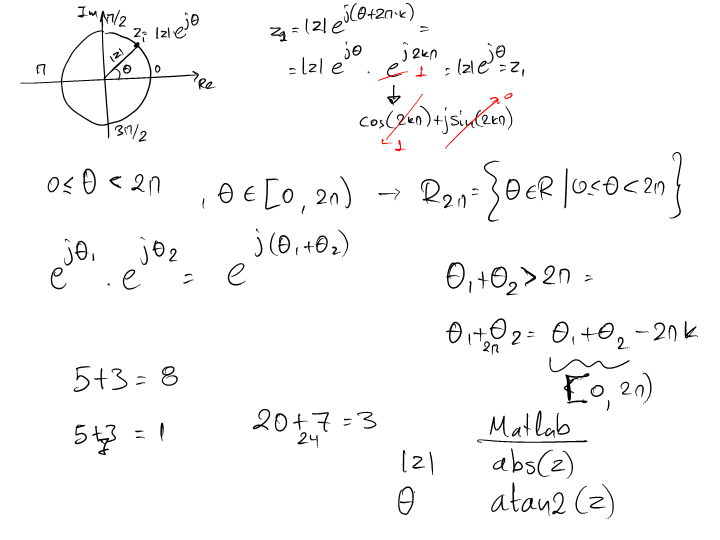 Im π/2
z₁ = |z| e^{jθ}
|z|
π θ 0 Re
3π/2
z₁ = |z| e^{j(θ+2π·k)} =
= |z| e^{jθ} · e^{j2kπ} 1 = |z| e^{jθ} = z₁
cos(2kπ) + j sin(2kπ) 0
1
0 ≤ θ < 2π , θ ∈ [0, 2π) → R_{2π} = {θ ∈ R | 0 ≤ θ < 2π}
e^{jθ₁} · e^{jθ₂} = e^{j(θ₁+θ₂)}
θ₁ + θ₂ > 2π =
θ₁ +_{2π} θ₂ = θ₁ + θ₂ - 2πk
[0, 2π)
5+3 = 8
5 +_7 3 = 1
20 +_{24} 7 = 3
Matlab
|z| abs(z)
θ atan2(z)